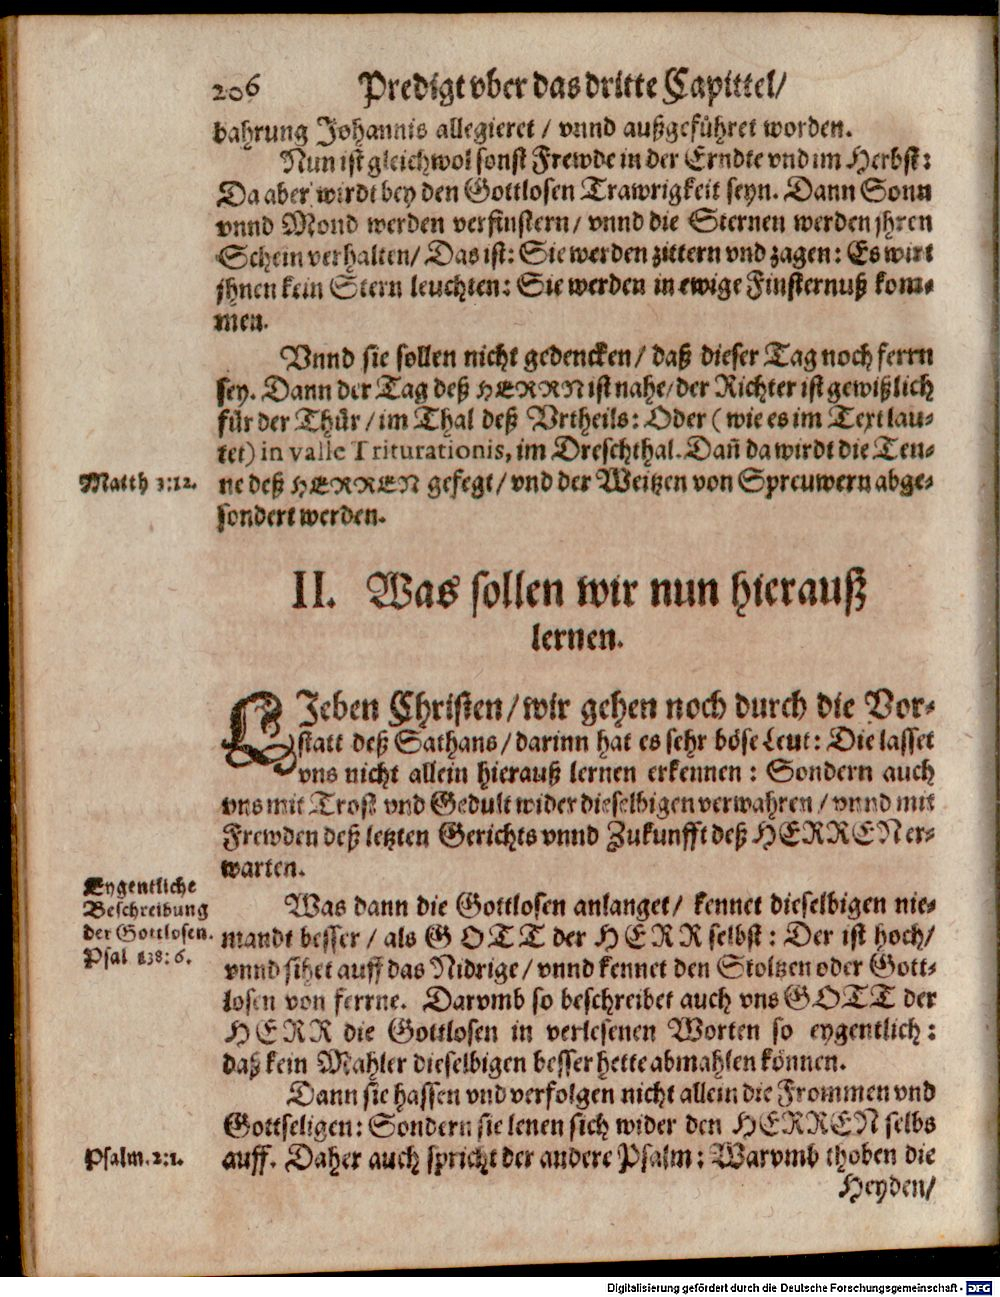 206 Predigt vber das dritte Capittel/
bahrung Johannis allegieret / vnnd außgeführet worden.
Nun ist gleichwol sonst Frewde in der Erndte vnd im Herbst:
Da aber wirdt bey den Gottlosen Trawrigkeit seyn. Dann Sonn
vnnd Mond werden verfinstern/ vnnd die Sternen werden jhren
Schein verhalten/ Das ist: Sie werden zittern vnd zagen: Es wirt
jhnen kein Stern leuchten: Sie werden in ewige Finsternuß kom-
men.
Vnnd sie sollen nicht gedencken/ daß dieser Tag noch ferrn
sey. Dann der Tag deß HERRN ist nahe/ der Richter ist gewißlich
für der Thür / im Thal deß Vrtheils: Oder ( wie es im Text lau-
tet) in valle Triturationis, im Dreschthal. Dañ da wirdt die Ten-
Matth 3:12.
ne deß HERREN gefegt/ vnd der Weitzen von Sprewern abge-
sondert werden.
II. Was sollen wir nun hierauß
lernen.
LJeben Christen/ wir gehen noch durch die Vor-
statt deß Sathans/ darinn hat es sehr böse Leut: Die lasset
vns nicht allein hierauß lernen erkennen: Sondern auch
vns mit Trost vnd Gedult wider dieselbigen verwahren / vnnd mit
Frewden deß letzten Gerichts vnnd Zukunfft deß HERREN er-
warten.
Eygentliche
Beschreibung
der Gottlosen.
Psal 138: 6.
Was dann die Gottlosen anlanget/ kennet dieselbigen nie-
mandt besser / als GOTT der HERR selbst: Der ist hoch/
vnnd sihet auff das Nidrige / vnnd kennet den Stoltzen oder Gott-
losen von ferrne. Darvmb so beschreibet auch vns GOTT der
HERR die Gottlosen in verlesenen Worten so eygentlich:
daß kein Mahler dieselbigen besser hette abmahlen können.
Dann sie hassen vnd verfolgen nicht allein die Frommen vnd
Gottseligen: Sondern sie lenen sich wider den HERREN selbs
Psalm. 2:1.
auff. Daher auch spricht der andere Psalm: Warvmb thoben die
Heyden/
Digitalisierung gefördert durch die Deutsche Forschungsgemeinschaft - DFG